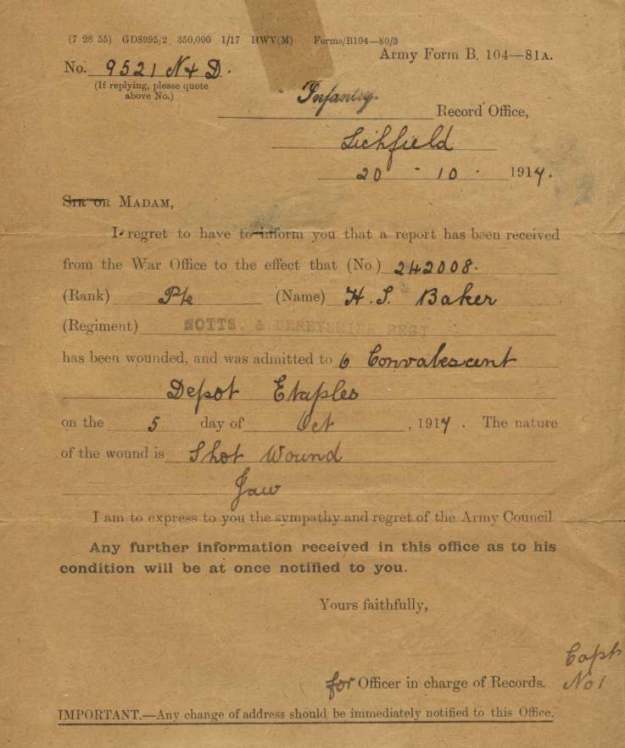 (7 28 55) GD8095/2 350,000 1/17 HWV(M) Forms/B104—80/3
Army Form B. 104—81A.
No. 9521 N & D.
(If replying, please quote
above No.)
Infantry Record Office,
Lichfield
20 - 10 - 1917.
SIR OR MADAM,
I regret to have to inform you that a report has been received
from the War Office to the effect that (No.) 242008.
(Rank) Pte (Name) H. S. Baker
(Regiment) NOTTS. & DERBYSHIRE REGT
has been wounded, and was admitted to 6 Convalescent
Depot Etaples
on the 5 day of Oct, 1917. The nature
of the wound is Shot Wound
Jaw
I am to express to you the sympathy and regret of the Army Council
Any further information received in this office as to his
condition will be at once notified to you.
Yours faithfully,
Capt
for Officer in charge of Records. No 1
IMPORTANT.—Any change of address should be immediately notified to this Office.